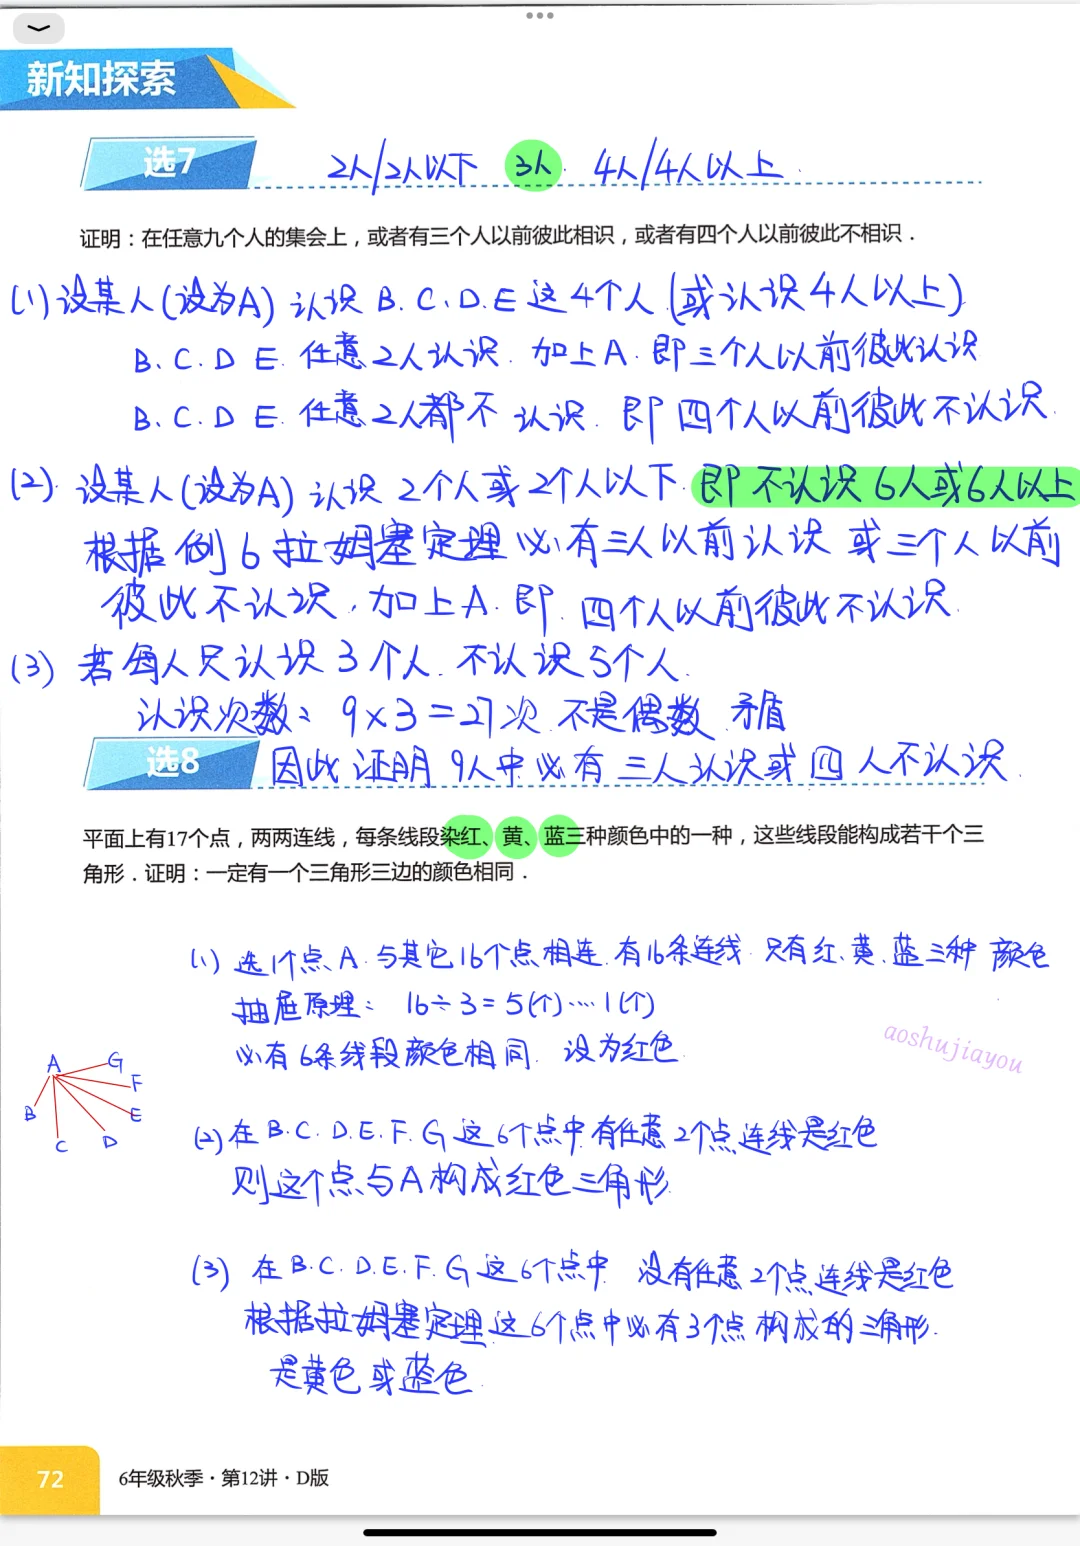 新知探索
选7
2人/2人以下 3人 4人/4人以上
证明：在任意九个人的集会上，或者有三个人以前彼此相识，或者有四个人以前彼此不相识．
(1) 设某人(设为A) 认识 B.C.D.E 这4个人 (或认识4人以上)
B.C.D E. 任意2人认识. 加上A. 即三个人以前彼此认识
B.C.D E. 任意2人都不认识. 即四个人以前彼此不认识.
(2). 设某人(设为A) 认识 2个人或2个人以下. 即不认识6人或6人以上
根据例6拉姆塞定理必有三人以前认识 或三个人以前
彼此不认识, 加上A. 即.四个人以前彼此不认识.
(3) 若每人只认识3个人. 不认识5个人.
认识次数: 9×3=27次 不是偶数 矛盾
选8
因此证明9人中必有三人认识或四人不认识.
平面上有17个点，两两连线，每条线段染红、黄、蓝三种颜色中的一种，这些线段能构成若干个三
角形．证明：一定有一个三角形三边的颜色相同．
(1) 选1个点A. 与其它16个点相连. 有16条连线. 只有红、黄、蓝三种颜色
抽屉原理: 16÷3=5(个)…1(个)
必有6条线段颜色相同. 设为红色.
aoshujiayou
A G
F
B E
C D
(2) 在B.C.D.E.F.G这6个点中有任意2个点连线是红色
则这个点与A构成红色三角形.
(3) 在B.C.D.E.F.G这6个点中. 没有任意2个点连线是红色
根据拉姆塞定理这6个点中必有3个点构成的三角形.
是黄色或蓝色.
72
6年级秋季·第12讲·D版